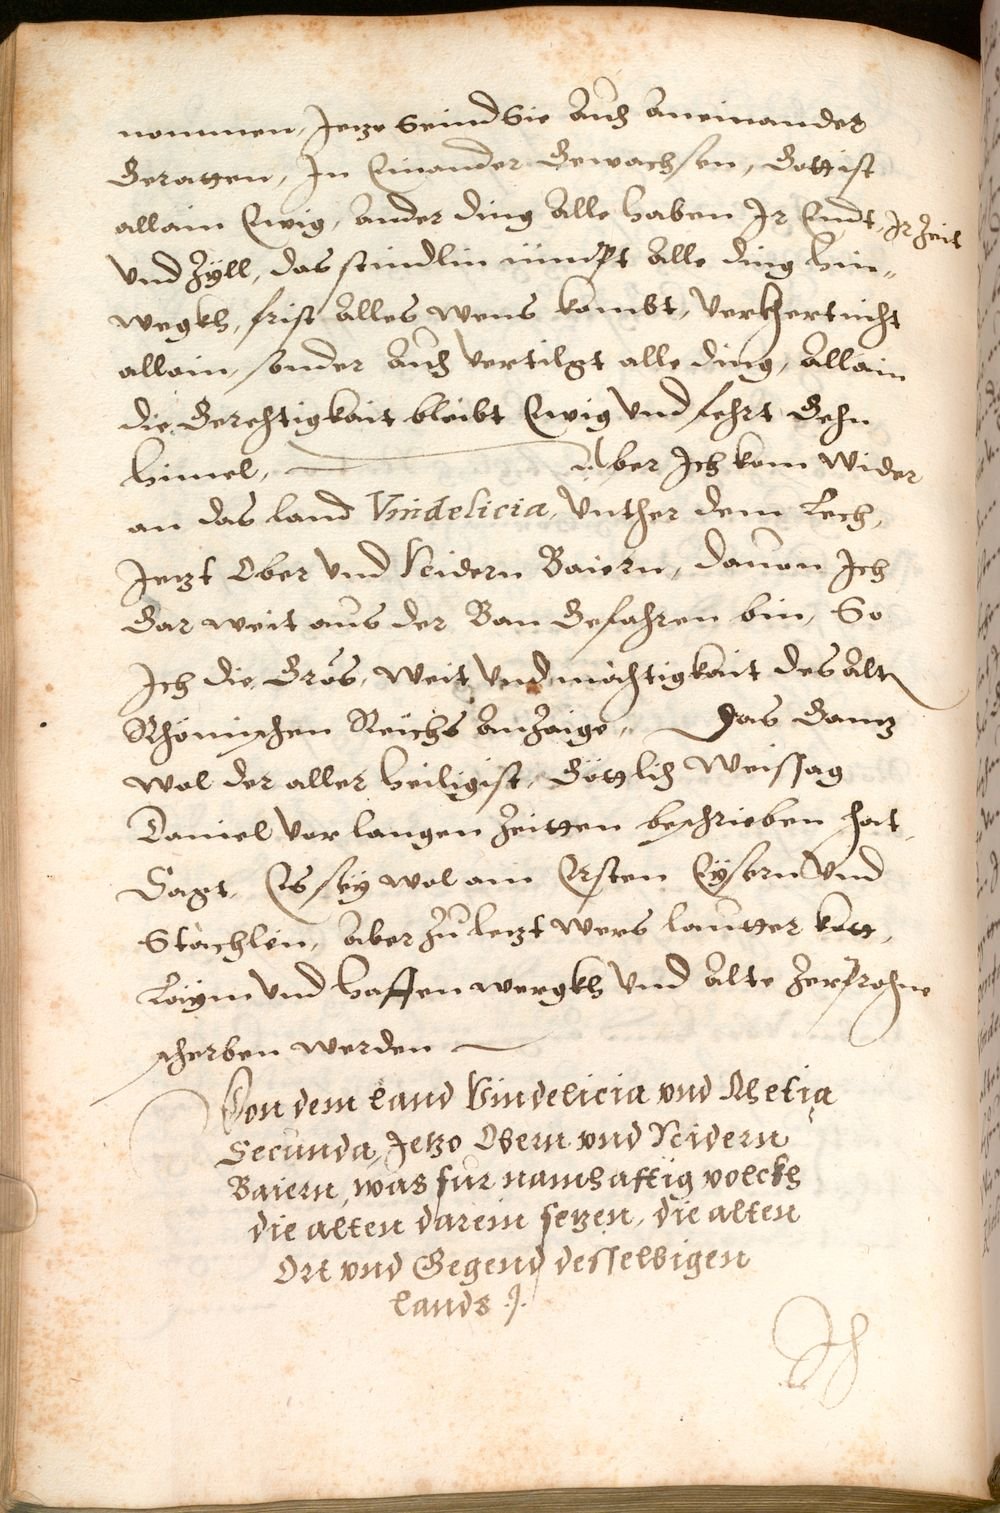 nommen, Jetzo Seind Sie Auch Aneinander
Geratten, In Einander Gewachsen, Gott ist
allain Ewig, Ander ding Alle haben Jr Endt, Jr Zeit
Vnd Zyll, das stindlin nimpt Alle ding hin,,
wegkh, frist Alles Wens kombt, Verkhert nicht
allain, sonder Auch Vertilgt alle ding, Allain
die Gerechtigkait bleibt Ewig Vnd fehrt Gehn
himel, Aber Jch kom Wider
an das land Vindelicia, Vnther dem Lech,
Jetzt Ober Vnd Nidern Baiern, dauon Jch
Gar weit aus der Ban Gefahren bin, So
Jch die Grös, Weit Vnd mächtigkait des Alten
Rhömischen Reichs Anzaige,, Das Gantz
wol der aller heiligist, Göttlich Weissag
Daniel Vor langen Zeitten beschrieben hat,
Sagt, Es sey wol am Ersten Eysern Vnd
Stächlen, Aber Zu letzt Wers lautter kott,
Laym Vnd haffen wergkh Vnd Alte Zerbrohne
scherben werden
Von dem land Vindelicia vnd Rhetia
Secunda, Jetzo Obern vnd Nidern
Baiern, was fur namhafftig volckh
die alten darein setzen, die alten
Ort vnd Gegend desselbigen
lands .J.
Jch